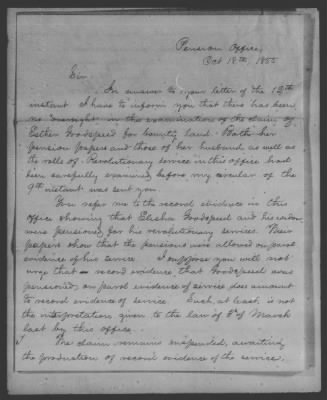 Pension Office,
Oct 18th, 1855
Sir,
In answer to your letter of the 12th
instant I have to inform you that there has been
no "oversight" in the examination of the claim of
Esther Goodspeed for bounty land. Both her
pension papers and those of her husband as well as
the rolls of Revolutionary service in this office had
been carefully examined before my circular of the
9th instant was sent you.
You refer me to the record evidence in this
office showing that Elisha Goodspeed and his widow
were pensioned for his revolutionary services. Their
papers show that the pensions were allowed on parol
evidence of his service. I suppose you will not
urge that a record evidence that Goodspeed was
pensioned, on parol evidence of service does amount
to record evidence of service. Such, at least, is not
the interpretation given to the law of 3d of March
last by this office.
The claim remains suspended, awaiting
the production of record evidence of the service.